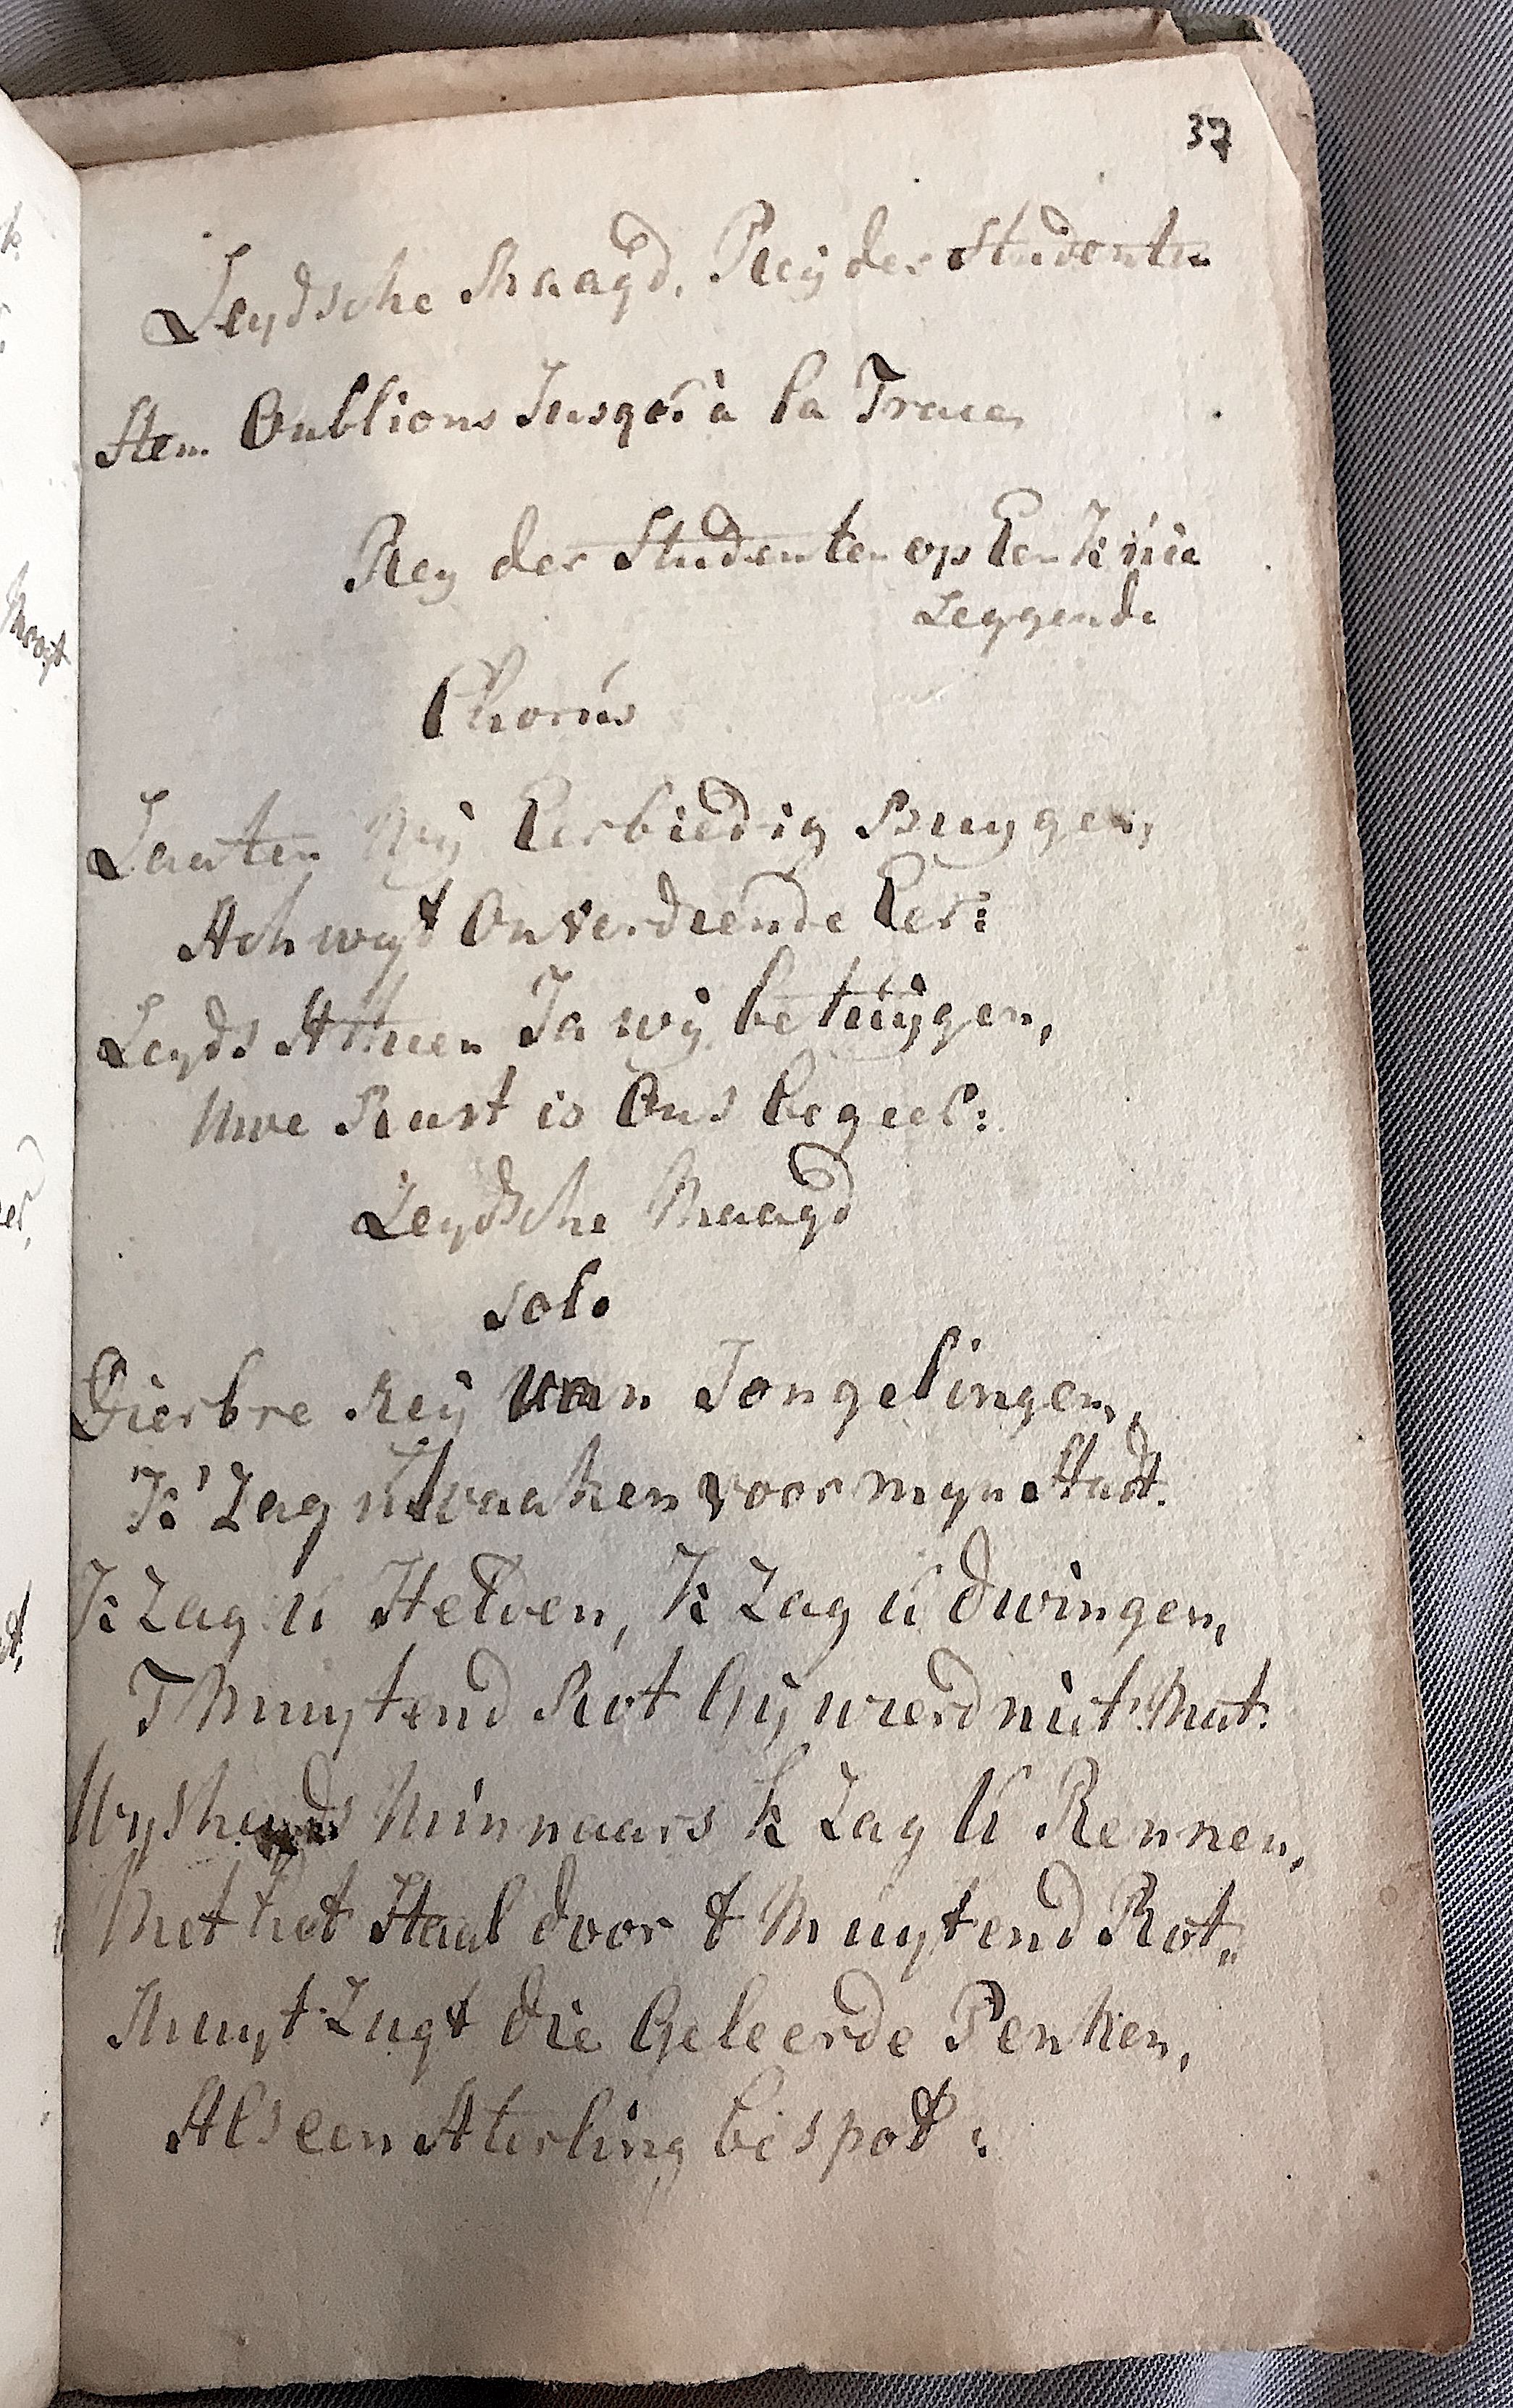 37
Leydsche Maagd, Rey der Studenten
Stem Oublions Jusqu'à la Trace,
Rey der Studenten op Een Knie
Leggende
Chorus
Laaten Wy Eerbiedig Buygen,
Ach wyt Onverdiende Eer:
Leyds Atheen Ja wy betuygen,
Uwe Rust is Ons begeel:
Leydsche Maagd
Solo
Dierbre Rey Van Jongelingen,
'K' Zag u Waaken voor myn Stadt.
K Zag ú Helden, K Zag ú dwingen,
T Muytend Rot Gy wierd niet Mat:
Wysheyds Minnaars k Zag U Rennen,
Met het Staal door t Muytend Rot,,
Muyt Zugt die Geleerde Penken,
Als een Aterling bespot: